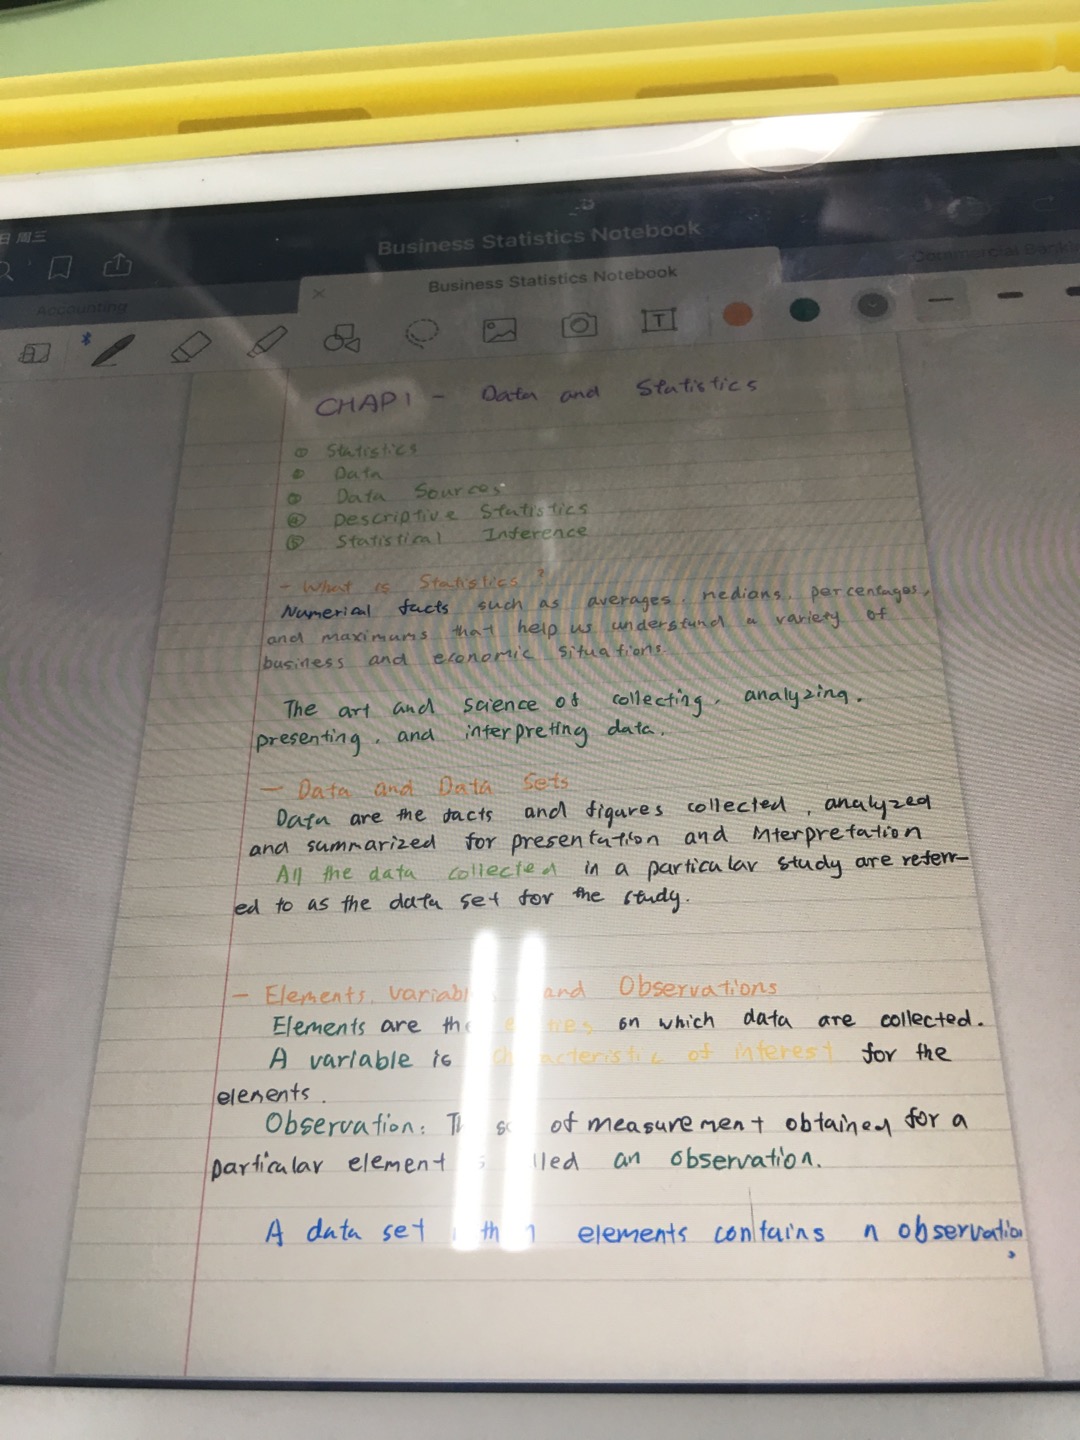 日 周三
Business Statistics Notebook
Business Statistics Notebook
Accounting
Commercial
T
CHAP1 - Data and Statistics
① Statistics
② Data
③ Data Sources
④ Descriptive Statistics
⑤ Statistical Inference
- What is Statistics?
Numerical facts such as averages, medians, percentages,
and maximums that help us understand a variety of
business and economic situations.
The art and science of collecting, analyzing,
presenting, and interpreting data.
- Data and Data Sets
Data are the facts and figures collected, analyzed
and summarized for presentation and interpretation
All the data collected in a particular study are referr-
ed to as the data set for the study.
- Elements, and Observations
Elements are the on which data are collected.
A variable is of interest for the
elements.
Observation: of measurement obtained for a
particular element an observation.
A data set elements contains n observatio